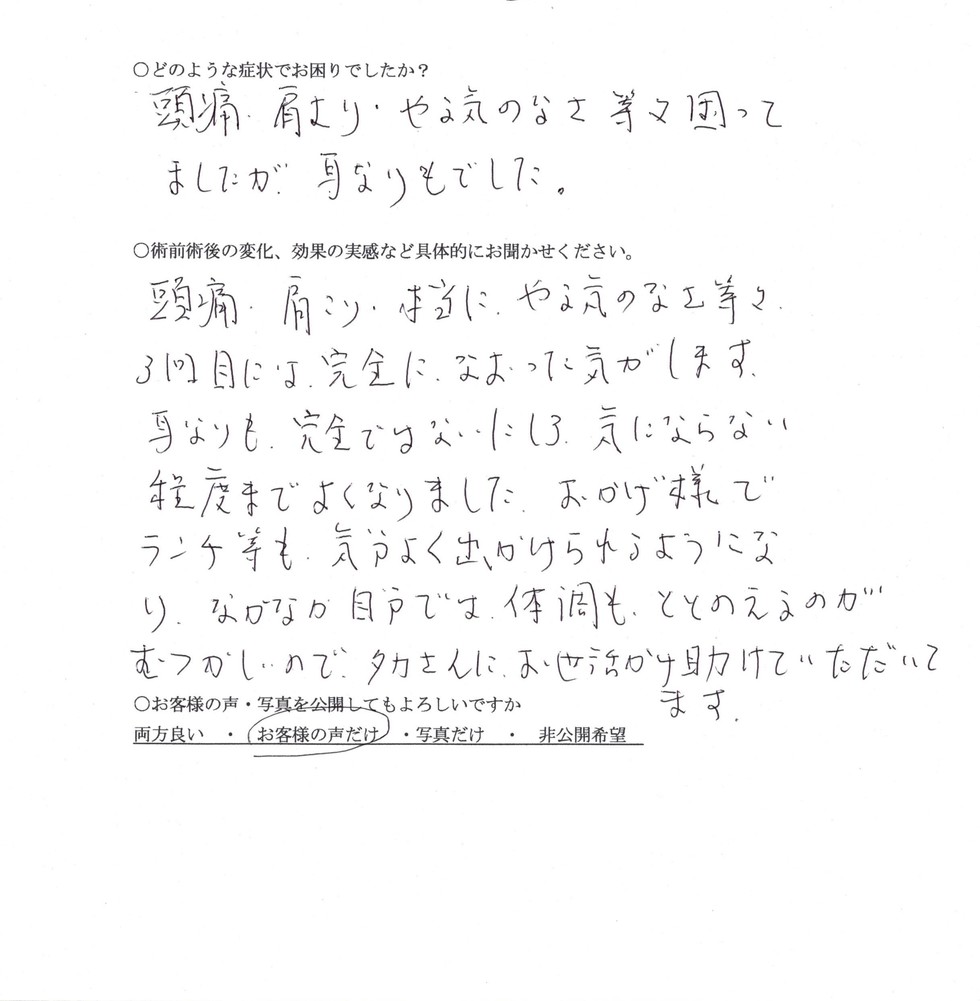 ○どのような症状でお困りでしたか？
頭痛・肩こり・やる気のなさ等々困って
ましたが、耳なりもでした。
○術前術後の変化、効果の実感など具体的にお聞かせください。
頭痛・肩こり・本当に、やる気のなさ等々、
3回目には、完全に、なおった気がします。
耳なりも、完全ではないにしろ、気にならない
程度までよくなりました。おかげ様で
ランチ等も、気分よく出かけられるようにな
り、なかなか自分では、体調も、ととのえるのが
むつかしいので、タカさんに、お世話かけ助けていただいて
ます。
○お客様の声・写真を公開してもよろしいですか
両方良い ・ お客様の声だけ ・写真だけ ・ 非公開希望